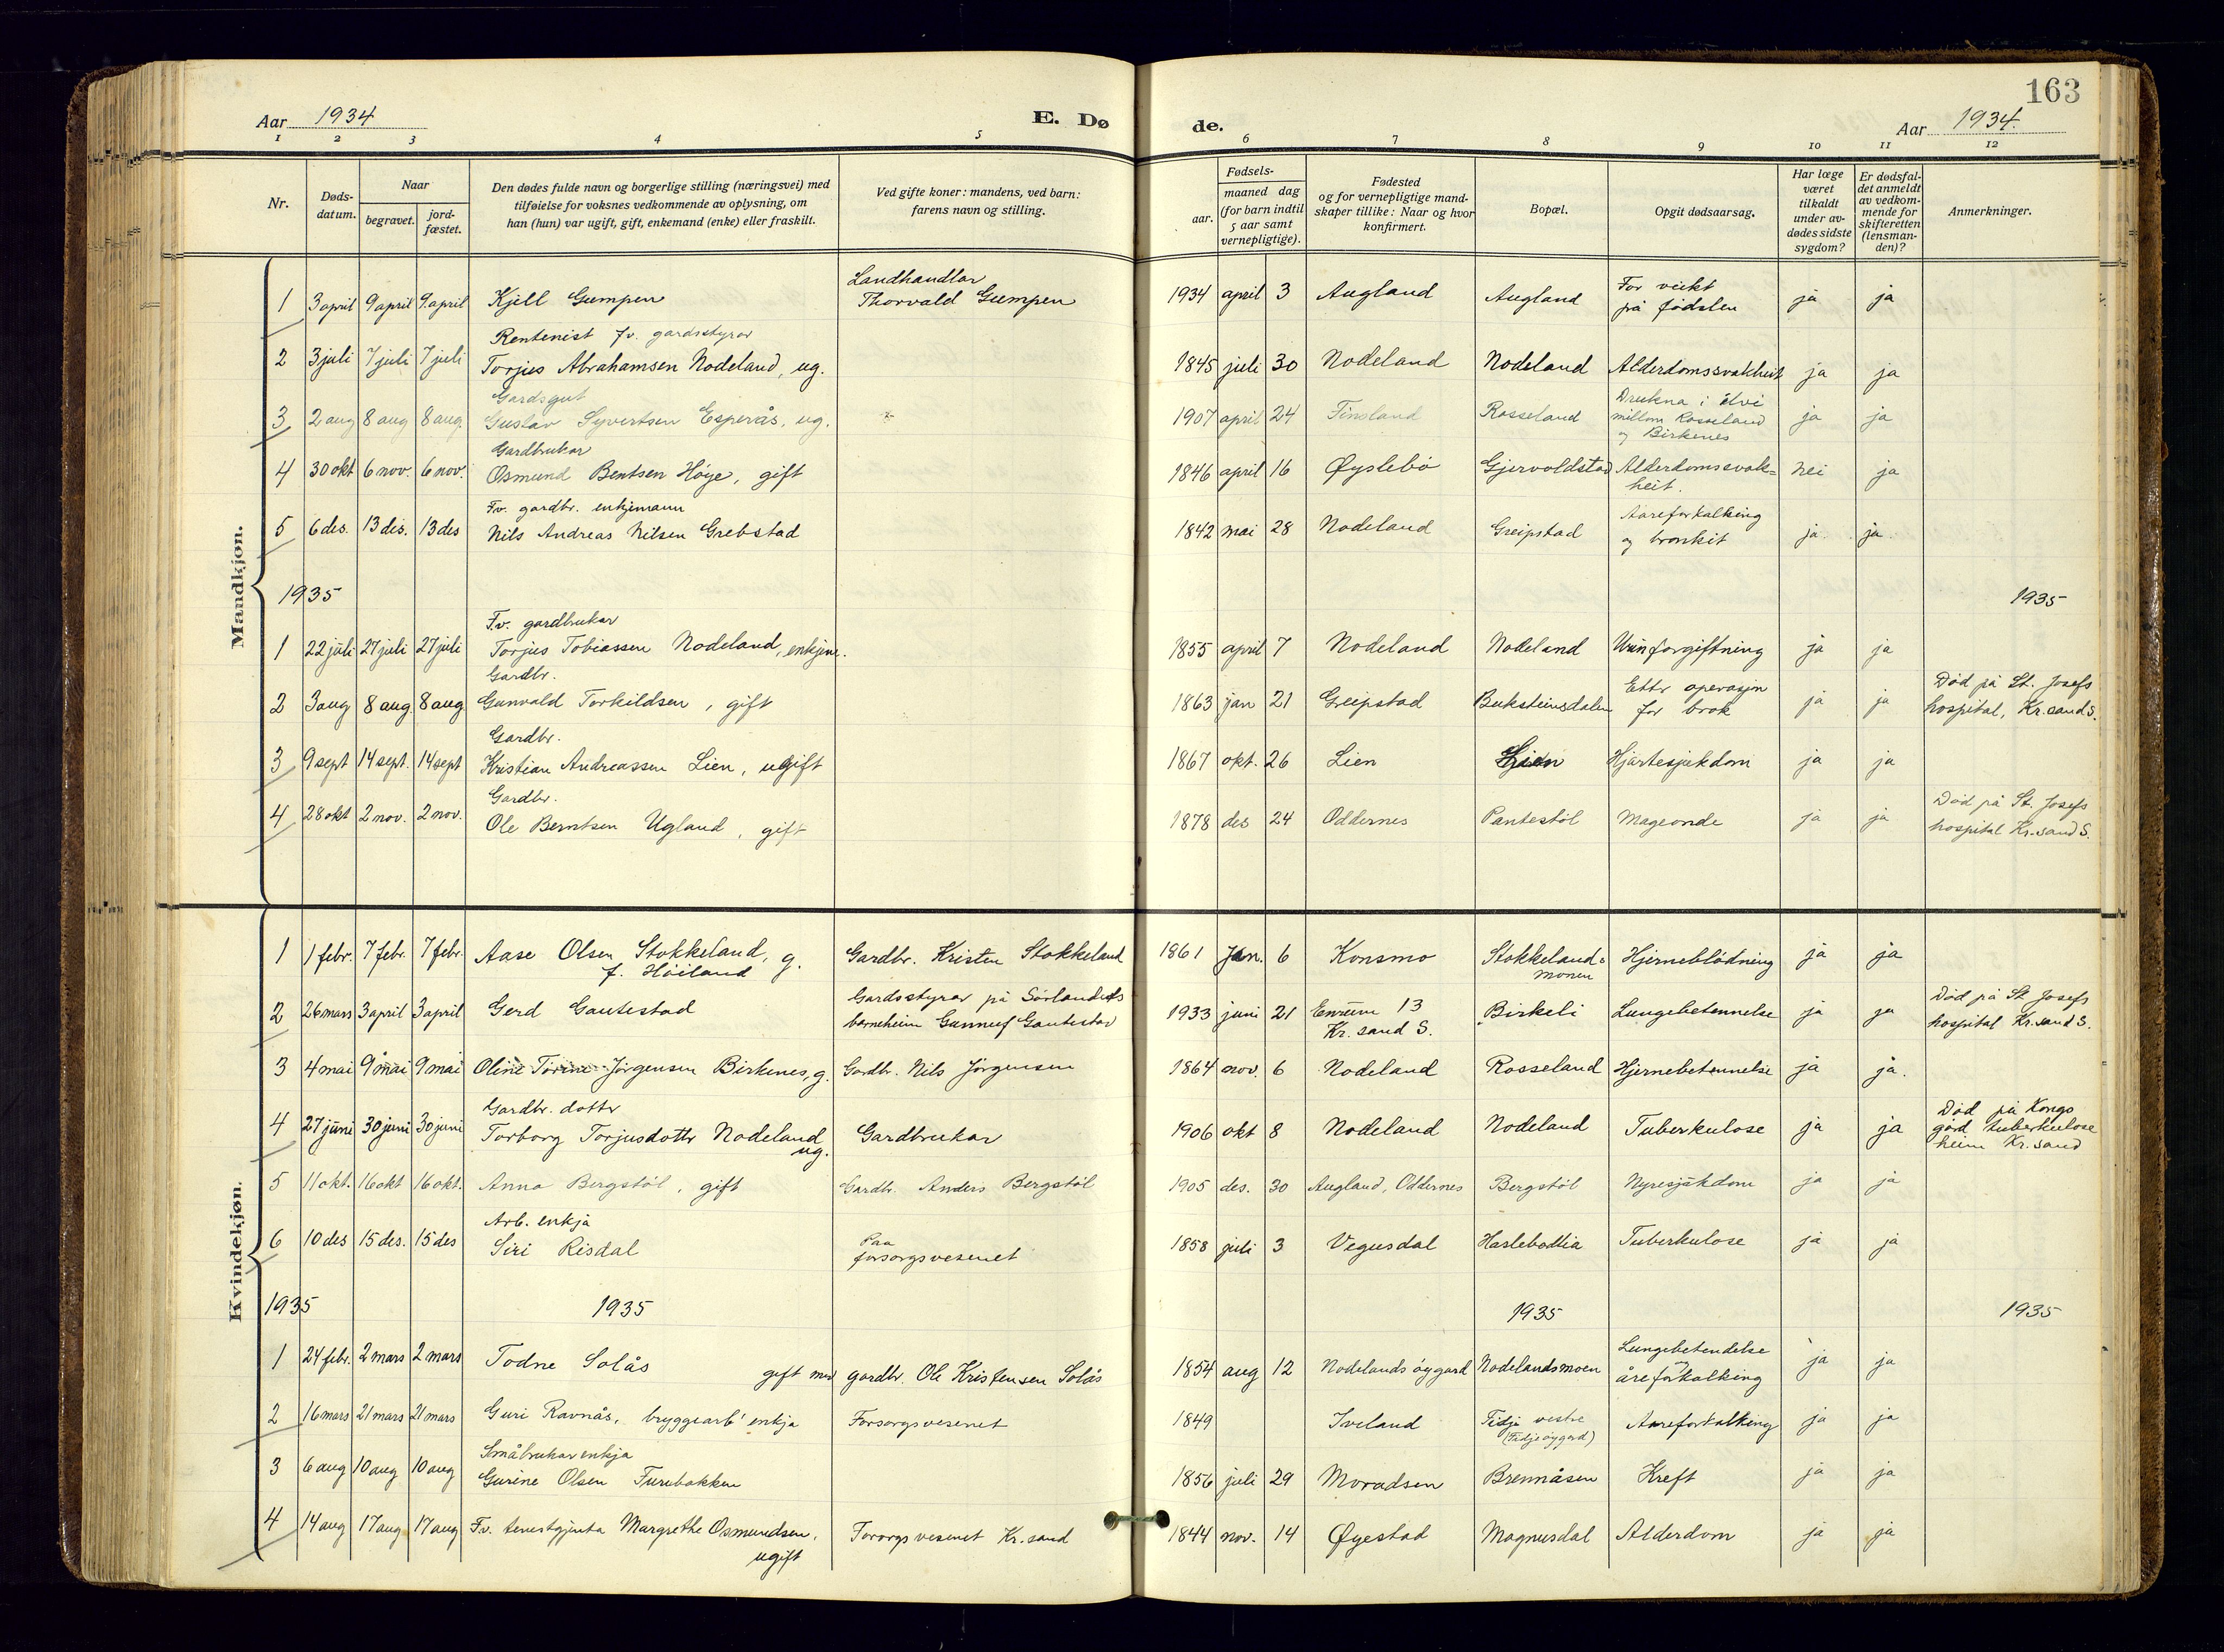 163
Aar 1934 E. Dø de. Aar 1934.
1 2 3 4 5 6 7 8 9 10 11 12
Nr.
Døds-
datum.
Naar
begravet.
jord-
fæstet.
Den dødes fulde navn og borgerlige stilling (næringsvei) med
tilføielse for voksnes vedkommende av oplysning, om
han (hun) var ugift, gift, enkemand (enke) eller fraskilt.
Ved gifte koner: mandens, ved barn:
farens navn og stilling.
Fødsels-
aar.
maaned dag
(for barn indtil
5 aar samt
vernepligtige).
Fødested
og for vernepligtige mand-
skaper tillike: Naar og hvor
konfirmert.
Bopæl.
Opgit dødsaarsag.
Har læge
været
tilkaldt
under av-
dødes sidste
sygdom?
Er dødsfal-
det anmeldt
av vedkom-
mende for
skifteretten
(lensman-
den)?
Anmerkninger.
Mandkjøn.
Landhandlar
1 3 april 9 april 9. april Kjell Gumpen Thorvald Gumpen 1934 april 3 Augland Augland For veikt
på fødslen ja ja
Rentenist fv. gardsstyrar
2 3 juli 7 juli 7 juli Torjus Abrahamsen Nodeland, ug. 1845 juli 30 Nodeland Nodeland Alderdomssvakheit ja ja
Gardsgut
3 2 aug 8 aug 8 aug. Gustav Syvertsen Esperås, ug. 1907 april 24 Finsland Rosseland Drukna i elvi
millom Rosseland
og Birkenes ja ja
Gardbrukar
4 30 okt 6 nov. 6 nov. Osmund Bentsen Höye, gift 1846 april 16 Øyslebö Gjervoldstad Alderdomssvak=
heit. nei ja
Fv. gardbr. enkjemann
5 6 des. 13 des. 13 des Nils Andreas Nilsen Grebstad 1842 mai 28 Nodeland Greipstad Aareforkalking
og bronkit ja. ja.
1935 1935
Fv. gardbrukar
1 22 juli 27 juli 27 juli Torjus Tobiassen Nodeland, enkjem. 1855 april 7 Nodeland Nodeland Urinforgiftning ja ja
Gardbr.
2 3 aug 8 aug. 8 aug. Gunvald Torkildsen, gift 1863 jan 21 Greipstad Buksteinsdalen Ettr operasjon
for brok ja ja Död på St. Josefs
hospital, Kr.sand S.
Gardbr.
3 9 sept 14 sept. 14 sept Kristian Andreassen Lien, ugift 1867 okt. 26 Lien Lien Hjartesjukdom ja ja
Gardbr.
4 28 okt 2 nov. 2 nov. Ole Berntsen Ugland, gift 1878 des 24 Oddernes Pantestöl Mageonde ja ja Död på St. Josefs
hospital Kr.sand S.
Kvindekjøn.
1 1 febr. 7 febr. 7 febr. Aase Olsen Stokkeland, g.
f. Höiland Gardbr. Kristen Stokkeland 1861 Jan. 6 Konsmo Stokkeland=
monen Hjerneblödning ja ja
2 26 mars 3 april 3 april Gerd Gautestad Gardsstyrar på Sörlandets
barneheim Gunnuf Gautestad 1933 juni 21 13
Kr. sand S. Birkeli Lungebetennelse ja ja Död på St Josefs
hospital Kr.sand S.
3 4 mai 9 mai 9 mai Oline Torine Jörgensen Birkenes, g. Gardbr. Nils Jörgensen 1864 nov. 6 Nodeland Rosseland Hjernebetennelse ja ja.
Gardbr. dottr
4 27 juni 30 juni 30 juni Torborg Torjusdottr Nodeland
ug. Gardbrukar 1906 okt 8 Nodeland Nodeland Tuberkulose ja ja Död på Kongs
gård tuberkulose
heim Kr.sand
5 11 okt. 16 okt 16 okt. Anna Bergstöl, gift Gardbr. Anders Bergstöl 1905 des. 30 Augland, Oddernes Bergstöl Nyresjukdom ja ja
Arb. enkja
6 10 des 15 des. 15 des Siri Risdal Paa
forsorgsvesenet 1858 juli 3 Vegusdal Haslebodlia Tuberkulose ja ja
1935 1935 1935 1935
1 24 febr. 2 mars 2 mars Todne Solås gift med gardbr. Ole Kristensen Solås 1854 aug 12 Nodelands öygard Nodelandsmoen Lungebetendelse
åreforkalking ja ja
2 16 mars 21 mars 21 mars Guri Ravnås, bryggearb' enkja Forsorgsvesenet 1849 Iveland Tidje vestre
(Tidjeöygard) Aareforkalking ja ja
Småbrukarenkja
3 6 aug 10 aug 10 aug Gurine Olsen Furebakken 1856 juli 29 Moradsen Brennåsen Kreft ja ja
4 14 aug 17 aug 17 aug Fv. tenestgjenta Margrethe Osmundsen,
ugift Forsorgsvesenet Kr.sand 1844 nov. 14 Øyestad Magnusdal Alderdom ja ja